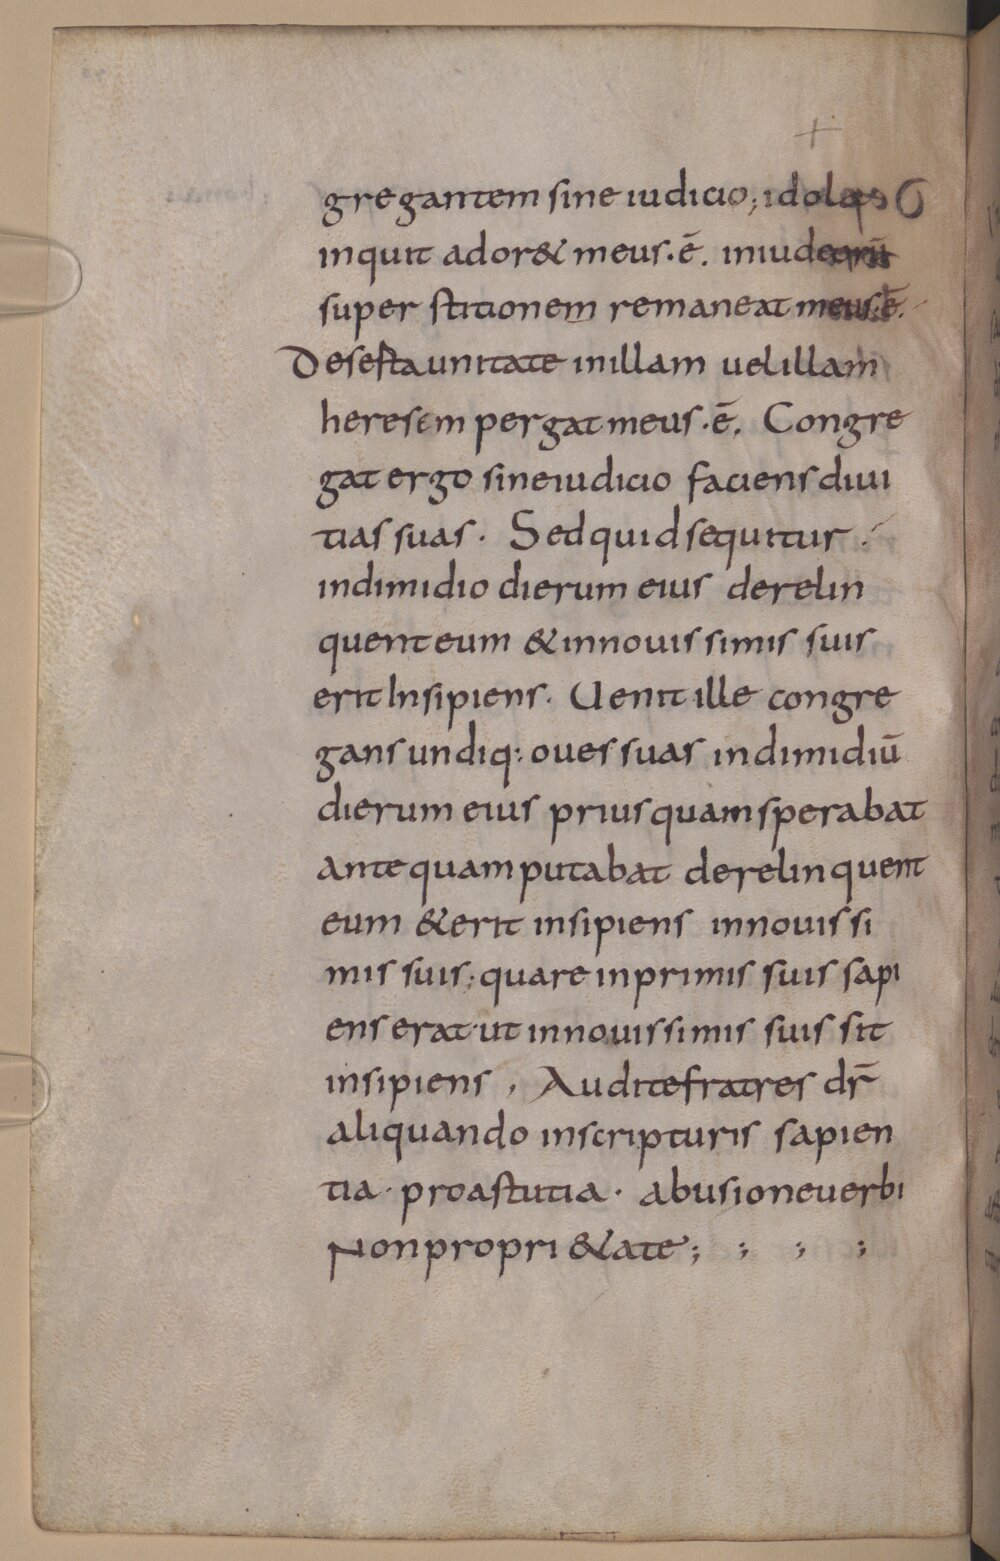 gregantem sine iudicio; idola
inquit ador& meus·ē. iniudeorū
super stitionem remaneat meus·ē.
Desesta unitate inillam uel illam
heresem pergat meus·ē. Congre
gat ergo sine iudicio faciens diui
tias suas. Sed quid sequitur.
indimidio dierum eius derelin
quent eum & innouis simis suis
erit Insipiens. Uenit ille congre
gans undiq; oues suas indimidiū
dierum eius prius quam sperabat
ante quam putabat derelinquent
eum & erit insipiens innouis si
mis suis; quare inprimis suis sapi
ens erat· ut innouissimis suis sit
insipiens, Audite fratres dr̄
aliquando inscripturis sapien
tia· pro astutia· abusione uerbi
Non propri&ate; ; ; ;